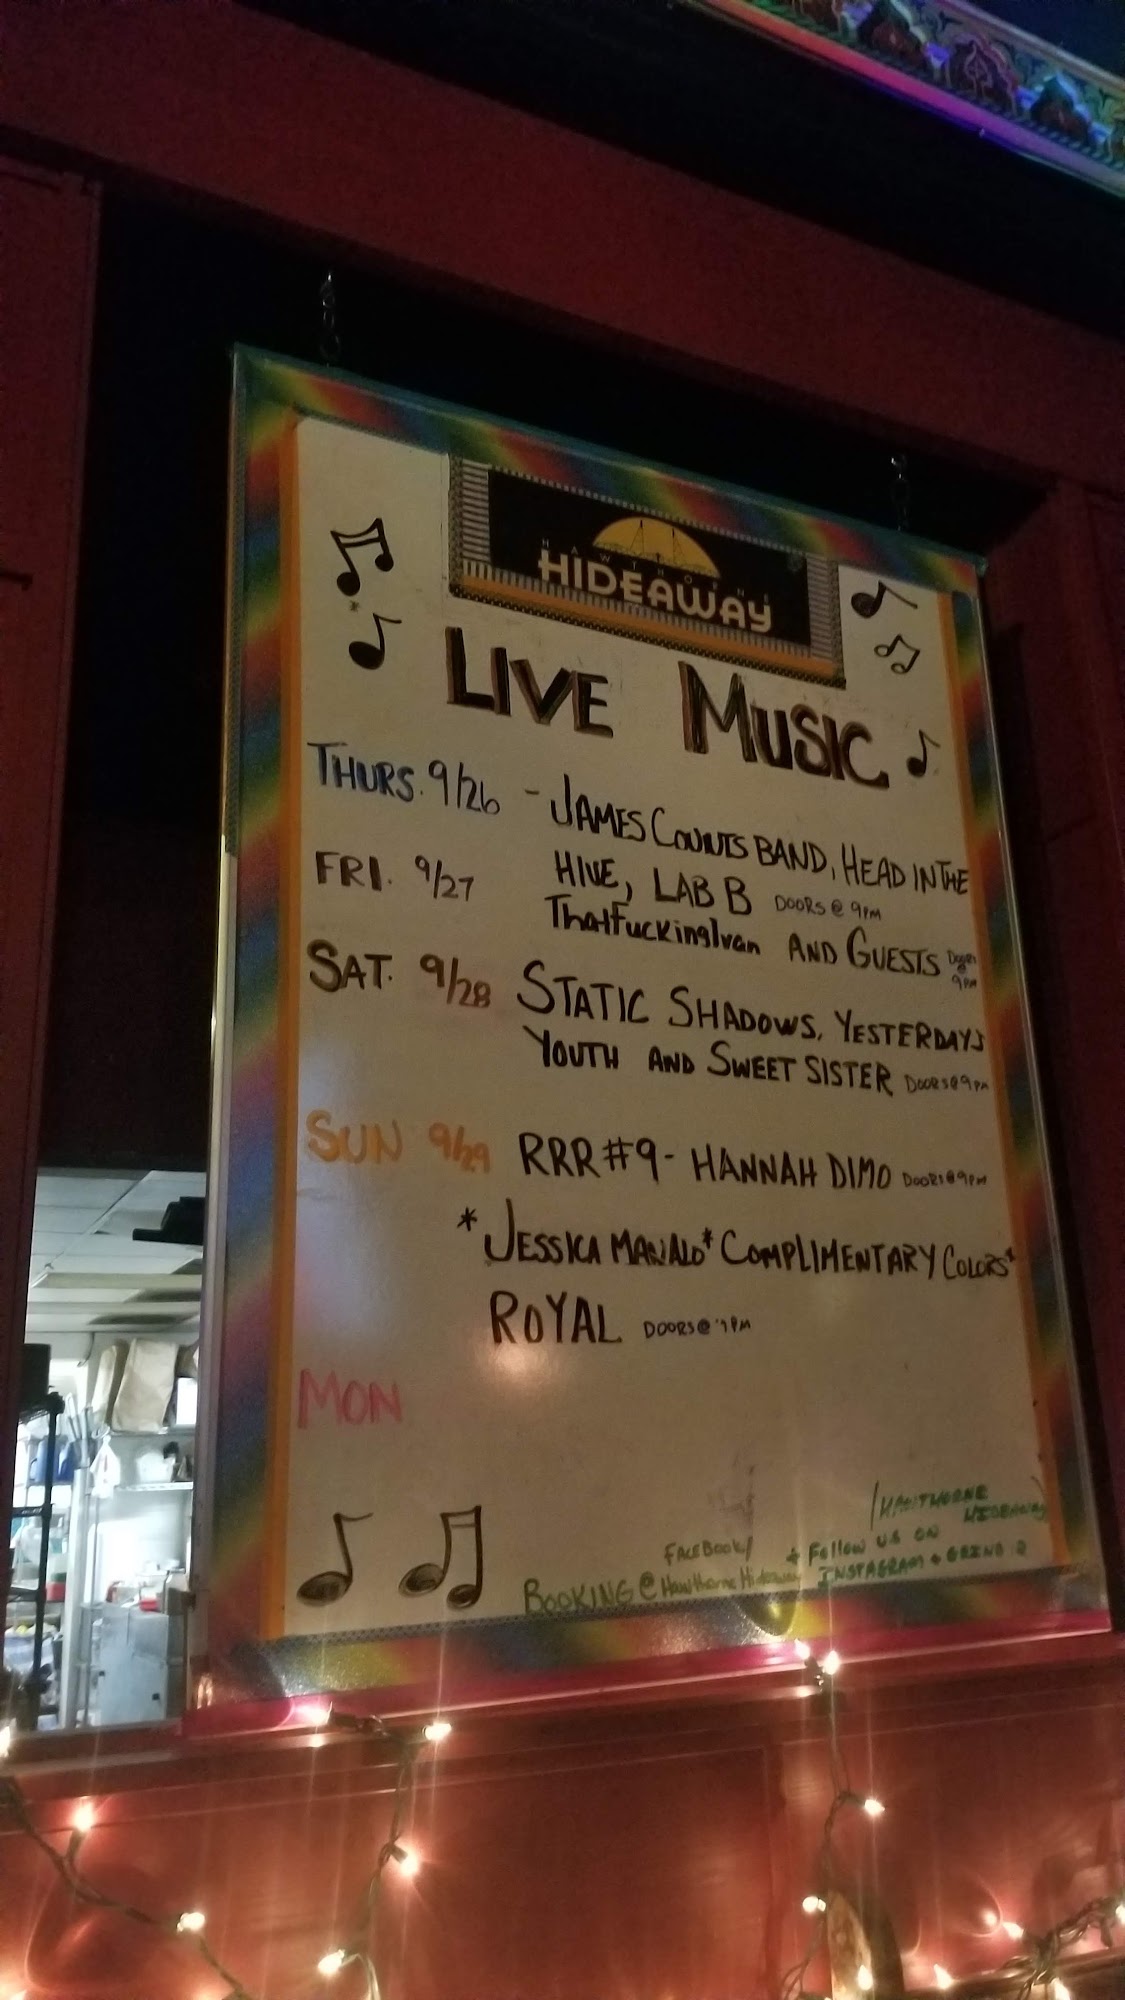 HAWTHORNE
HIDEAWAY
LIVE MUSIC
THURS. 9/26 - JAMES COUNTS BAND, HEAD IN THE
HIVE, LAB B DOORS @ 9PM
FRI. 9/27 ThatFuckingIvan AND GUESTS DOORS @ 9PM
SAT. 9/28 STATIC SHADOWS, YESTERDAYS
YOUTH AND SWEET SISTER DOORS@9PM
SUN 9/29 RRR #9 - HANNAH DIMO DOORS@9PM
*JESSICA MANALO* COMPLIMENTARY COLORS*
ROYAL DOORS@ 9PM
MON
FACEBOOK/
BOOKING @ Hawthorne Hideaway
/HAWTHORNE
HIDEAWAY
+ FOLLOW US ON
INSTAGRAM +